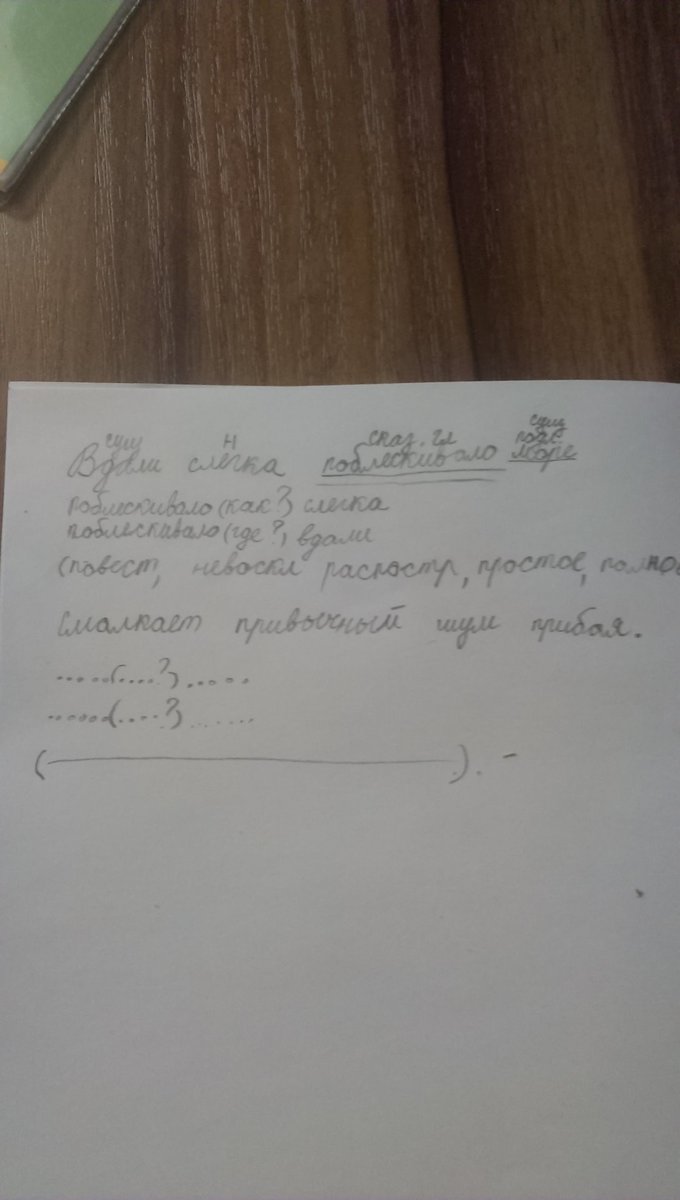 сущ Н сказ. гл сущ
подл
Вдали слегка поблескивало море
поблескивало (как?) слегка
поблескивало (где?) вдали
(повест, невоскл распостр, простое, полное
Смалкает привычный шум прибая.
......(....?)......
......(....?).......
( ). -